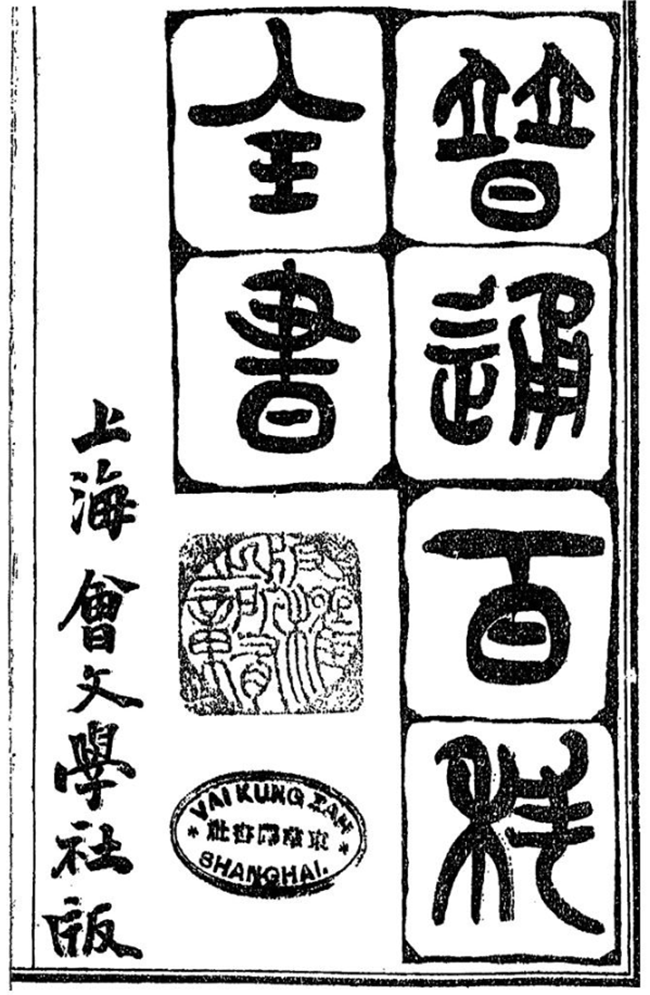 普通百科
全書
上海會文學社版
VAI KUNG ZAH
SHANGHAI.